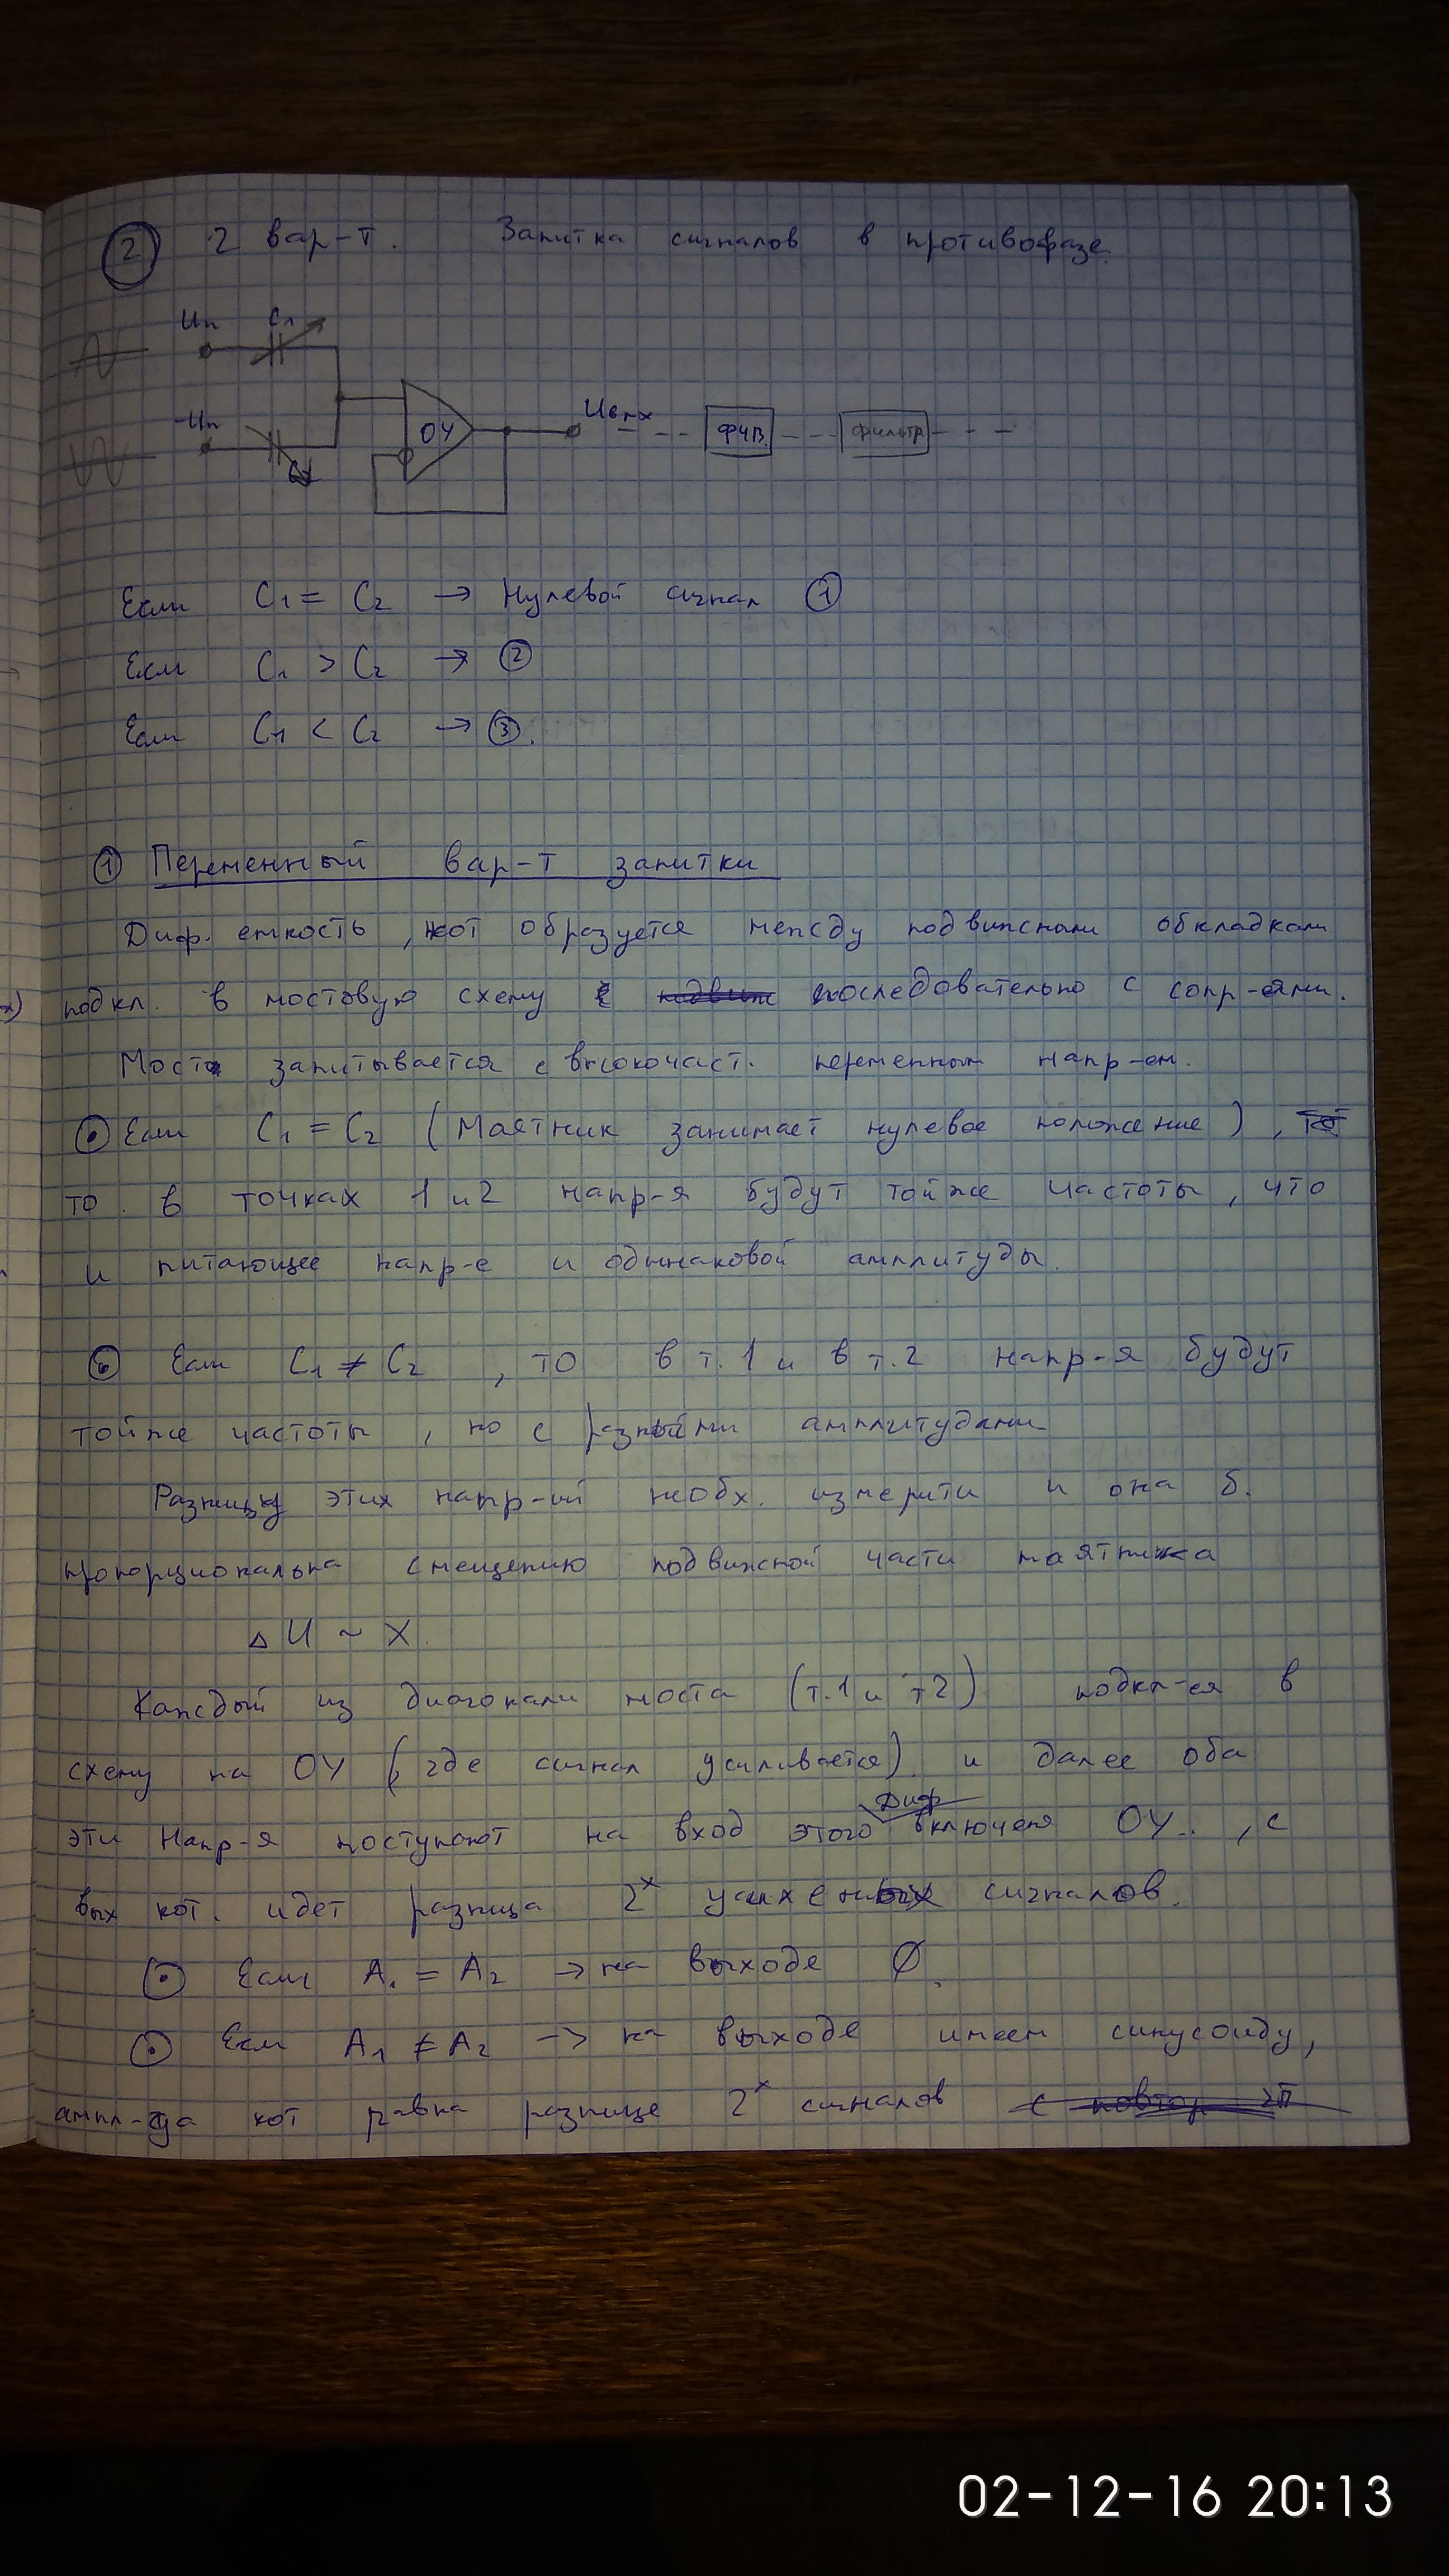 ② 2 вар-т. Запитка сигналов в противофазе.
Uп C1
-Uп
ОУ Uвых ФЧВ Фильтр
Если C1 = C2 → Нулевой сигнал ①
Если C1 > C2 → ②
Если C1 < C2 → ③.
① Переменный вар-т запитки
Диф. емкость, кот образуется между подвижными обкладками
подкл. в мостовую схему последовательно с сопр-ями.
Мост запитывается с высокочаст. переменным напр-ем.
Если C1 = C2 (Маятник занимает нулевое положение),
то в точках 1 и 2 напр-я будут той же частоты, что
и питающее напр-е и одинаковой амплитуды.
Если C1 ≠ C2, то в т.1 и в т.2 напр-я будут
той же частоты, но с разными амплитудами
Разницу этих напр-ий необх. измерити и она б.
пропорциональна смещению подвижной части маятника
ΔU ~ X.
Каждый из диагонали моста (т.1 и т2) подкл-ся в
схему на ОУ (где сигнал усиливается) и далее оба
Диф
эти Напр-я поступают на вход этого включеня ОУ.., с
вых кот. идет разница 2х сигналов.
Если A1 = A2 → на выходе ∅.
Если A1 ≠ A2 → на выходе имеем синусоиду,
ампл-да кот равна разнице 2х сигналов
02-12-16 20:13